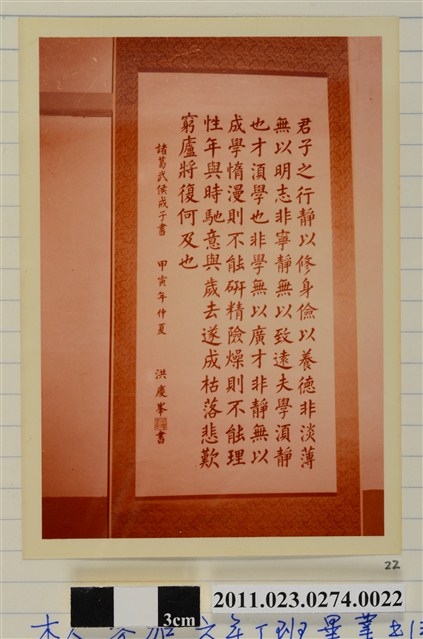 君子之行靜以修身儉以養德非淡薄
無以明志非寧靜無以致遠夫學須靜
也才須學也非學無以廣才非靜無以
成學慆漫則不能研精險燥則不能理
性年與時馳意與歲去遂成枯落悲歎
窮廬將復何及也
諸葛武侯戒子書 甲寅年仲夏 洪慶峯書
22
3cm
2011.023.0274.0022
本人參加六年丁班畢業